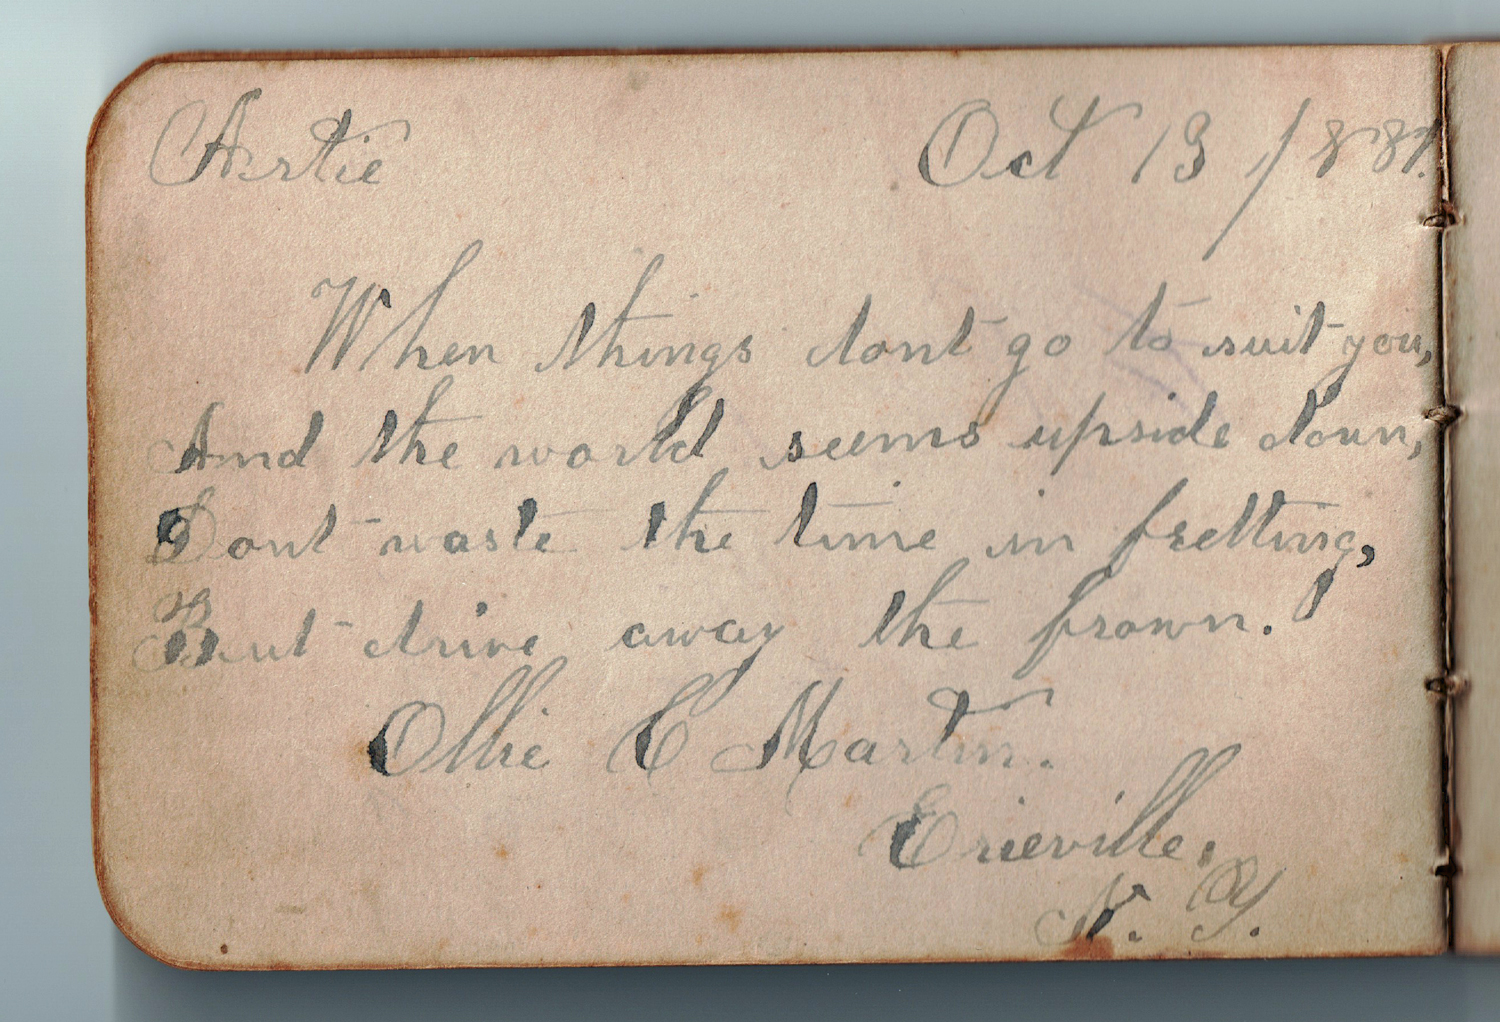 Artie Oct 13 1887.
When things dont go to suit you,
And the world seems upside down,
Dont waste the time in fretting,
But drive away the frown.
Ollie E Martin.
Erieville.
N. Y.